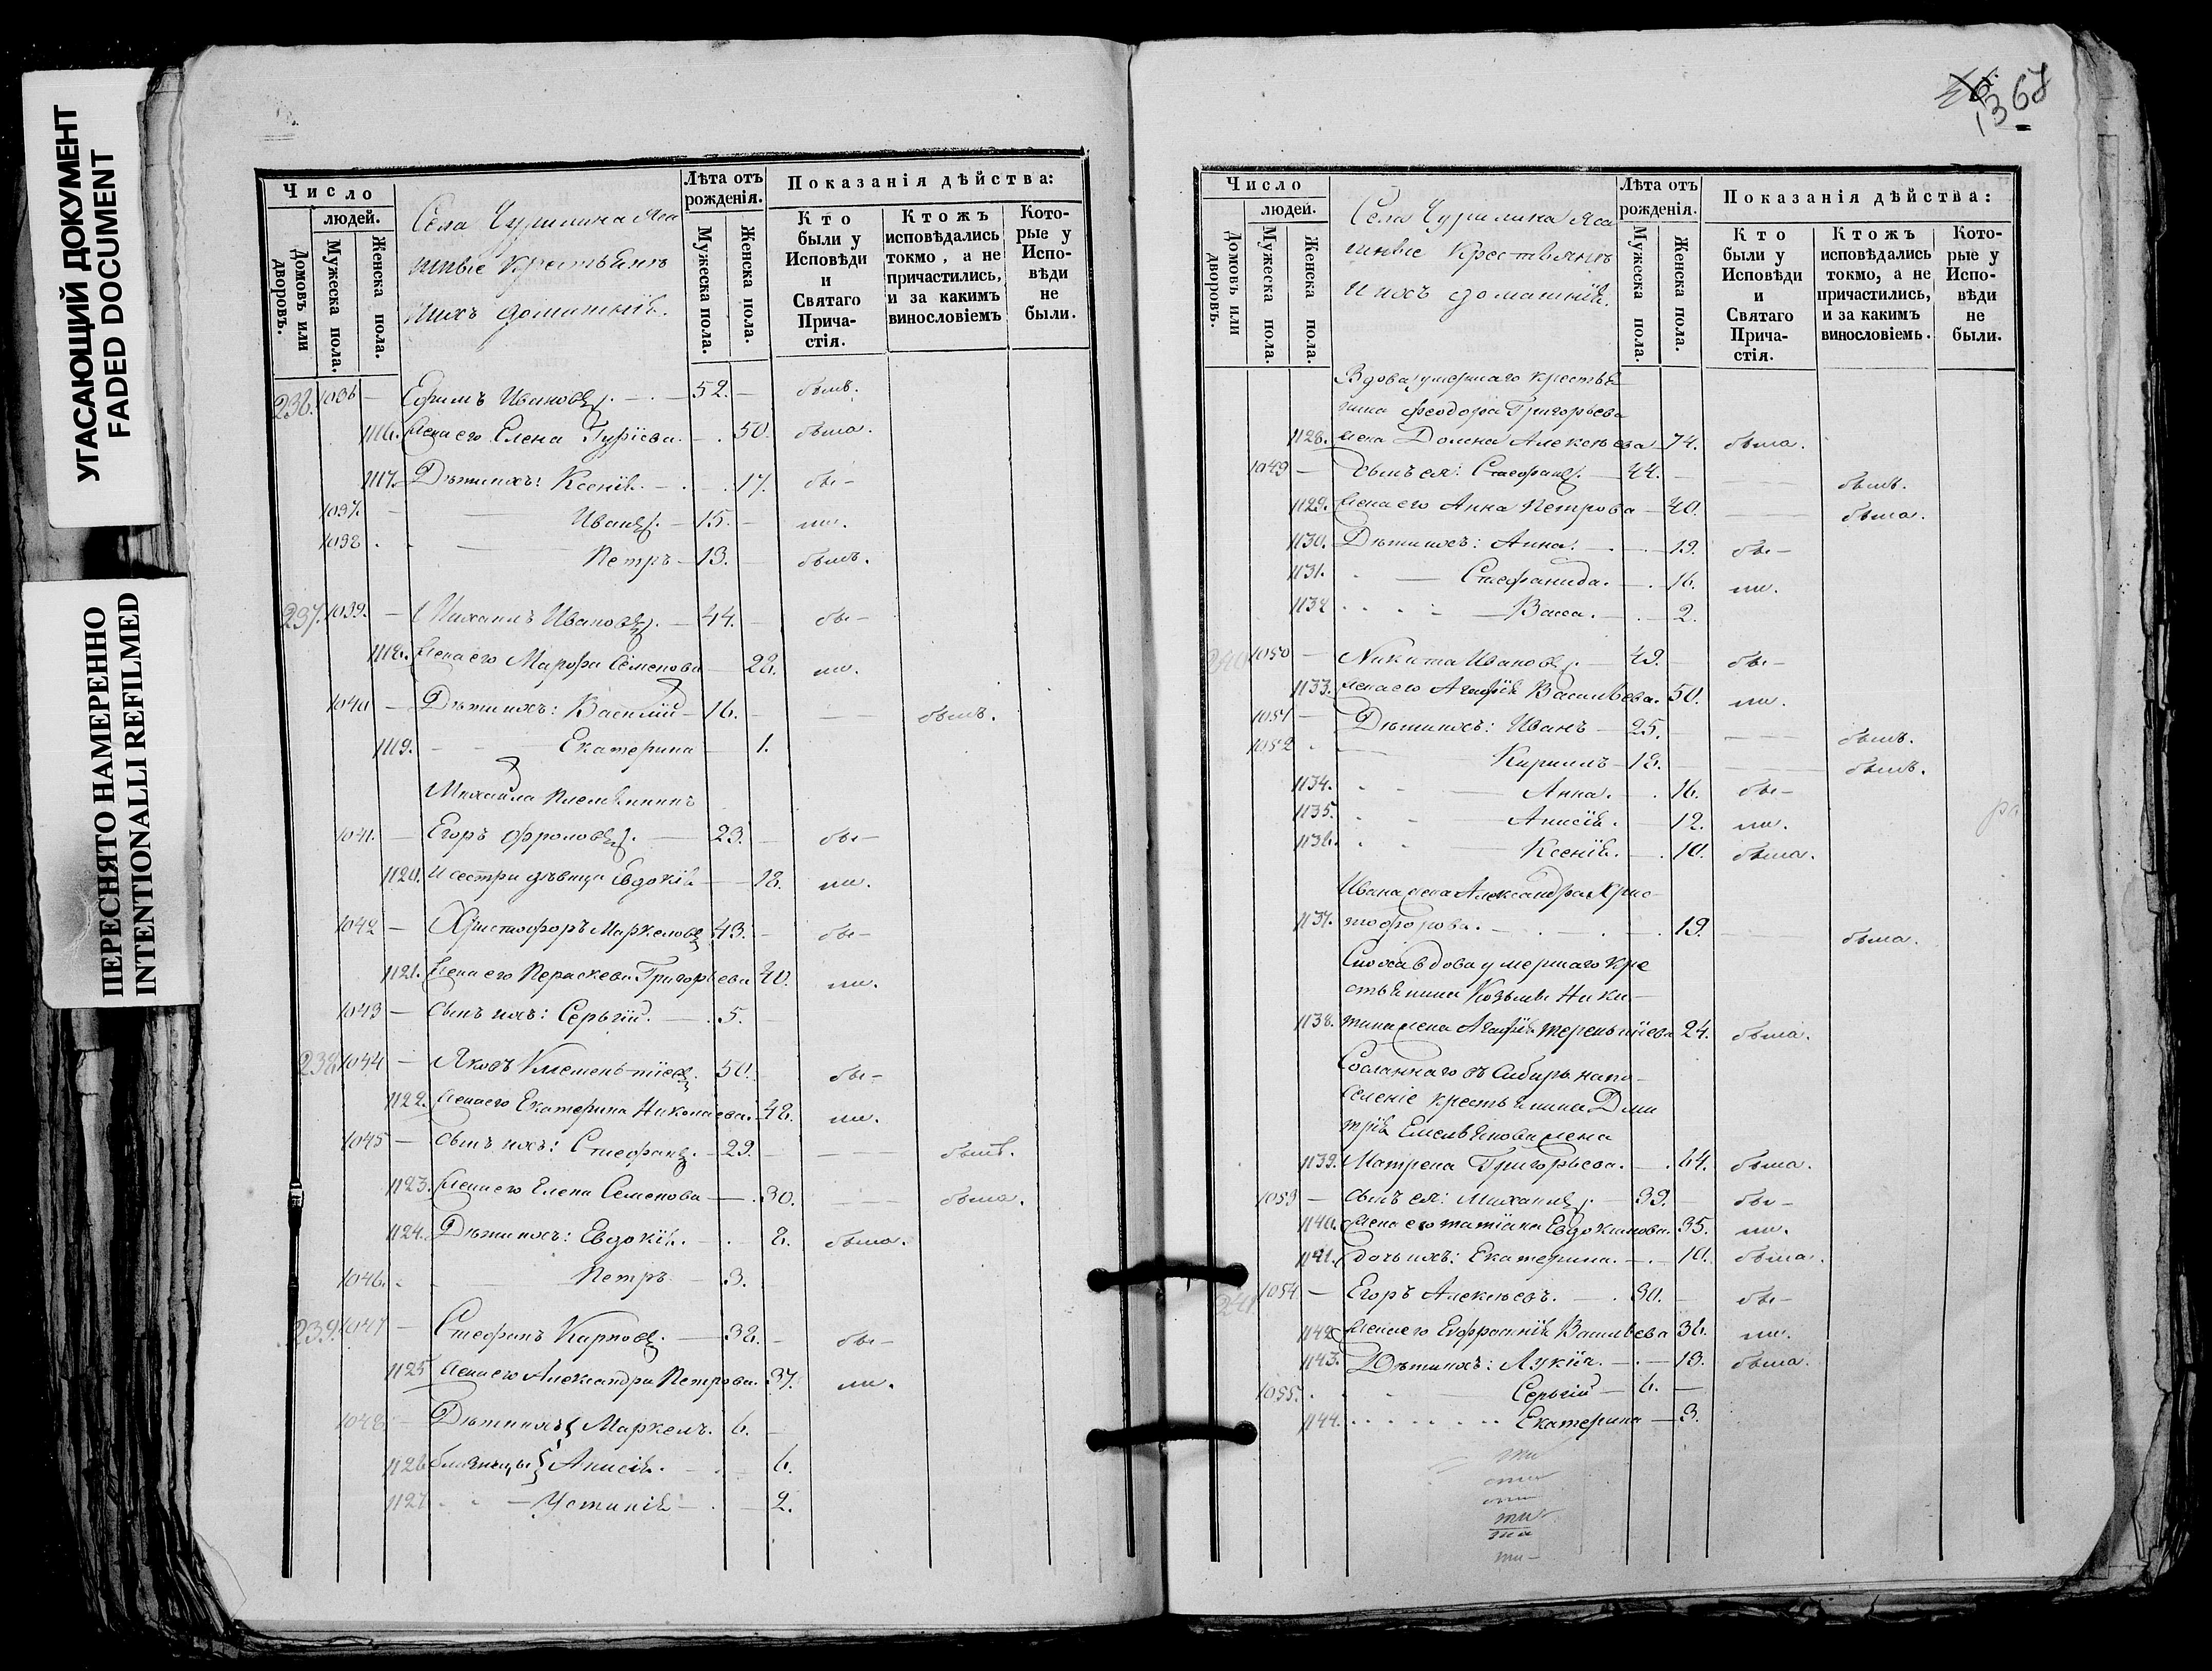 УГАСАЮЩИЙ ДОКУМЕНТ
FADED DOCUMENT
ПЕРЕСНЯТО НАМЕРЕННО
INTENTIONALLI REFILMED
Число
людей.
Домовъ или дворовъ.
Мужеска пола.
Женска пола.
Села Чурилина Яса
шные Крестьяне
и ихъ домашнія.
Лѣта отъ рожденія.
Мужеска пола.
Женска пола.
Показанія дѣйства:
Кто были у Исповѣди и Святаго Причастія.
Ктожъ исповѣдались токмо, а не причастились, и за какимъ винословіемъ
Которые у Исповѣди не были.
236. 1036 — Ефимъ Ивановъ. — 52. — былъ.
1116. Жена его Елена Гурiева. — 50. была.
1117. Дѣти ихъ: Ксенiя. — 17. бы-
1037. — Иванъ. — 15. — ли.
1038 Петръ — 13. — былъ.
237. 1039. — Михаилъ Ивановъ. — 44. — бы-
1118. Жена его Марфа Семенова — 28. ли.
1040 — Дѣти ихъ: Василiй — 16. — былъ.
1119. Екатерина — 1.
Михаила племянникъ
1041. — Егоръ Фроловъ. — 23. — бы-
1120. И сестра дѣвица Евдокiя — 18. ли.
1042 — Христофоръ Маркеловъ 43. — бы-
1121. Жена его Параскева Григорьева 40. ли.
1043 — Сынъ ихъ: Сергiй. — 5.
238. 1044 — Яковъ Клементiевъ. 50. — бы-
1122. Жена его Екатерина Николаева. 48. ли.
1045 — Сынъ ихъ: Стефанъ. — 29. — былъ.
1123. Жена его Елена Семенова — 30. была.
1124. Дѣти ихъ: Евдокiя. — 8. была.
1046. Петръ — 3.
239. 1047 — Стефанъ Карповъ. — 38. — бы-
1125 Жена его Александра Петрова. 37. ли.
1048. — Дѣти ихъ Маркелъ. 6. —
1126 близнецы Анисiя. — 6.
1127 — Устинiя — 2.
1367
Число
людей.
Домовъ или дворовъ.
Мужеска пола.
Женска пола.
Села Чурилина Яса
шные Крестьяне
и ихъ домашнiя.
Лѣта отъ рожденія.
Мужеска пола.
Женска пола.
Показанія дѣйства:
Кто были у Исповѣди и Святаго Причастія.
Ктожъ исповѣдались токмо, а не причастились, и за какимъ винословіемъ.
Которые у Исповѣди не были.
Вдова умершаго крестья
нина Феодора Григорьева
1128. жена Домна Алексѣева 74. была.
1049 — Сынъ ея: Стефанъ. — 44. — былъ.
1129. Жена его Анна Петрова — 40. была.
1130. Дѣти ихъ: Анна. — 19. бы-
1131. — Стефанида. — 16. ли.
1132 — Васса. — 2.
240 1050 — Никита Ивановъ. — 49. — бы-
1133. Жена его Агафiя Васильева. 50. ли.
1051 — Дѣти ихъ: Иванъ — 25. — былъ.
1052 Кирилъ — 18. — былъ.
1134. — Анна. — 16. бы-
1135. Анисiя. — 12. ли.
1136. — Ксенiя. — 10. была.
Ивана жена Александра Хрис-
1137. тофорова. — 19. была.
Сноха вдова умершаго кре
стьянина Козьмы Ники-
1138. тина жена Агафiя Терентiева 24. была.
Сосланнаго въ Сибирь на по-
селенiе крестьянина Дми
трiя Емельянова жена
1139. Матрена Григорьева. — 64. была.
1053 — Сынъ ея: Михаилъ. — 39. бы-
1140. Жена его Татiана Евдокимова. 35. ли.
1141. Дочь ихъ: Екатерина. — 10. была.
241 1054 — Егоръ Алексѣевъ. — 30. — бы-
1142 Жена его Евфросинiя Васильева 36. ли.
1143. Дѣти ихъ: Лукiя. — 13. была.
1055. Сергiй — 6. —
1144. Екатерина — 3.